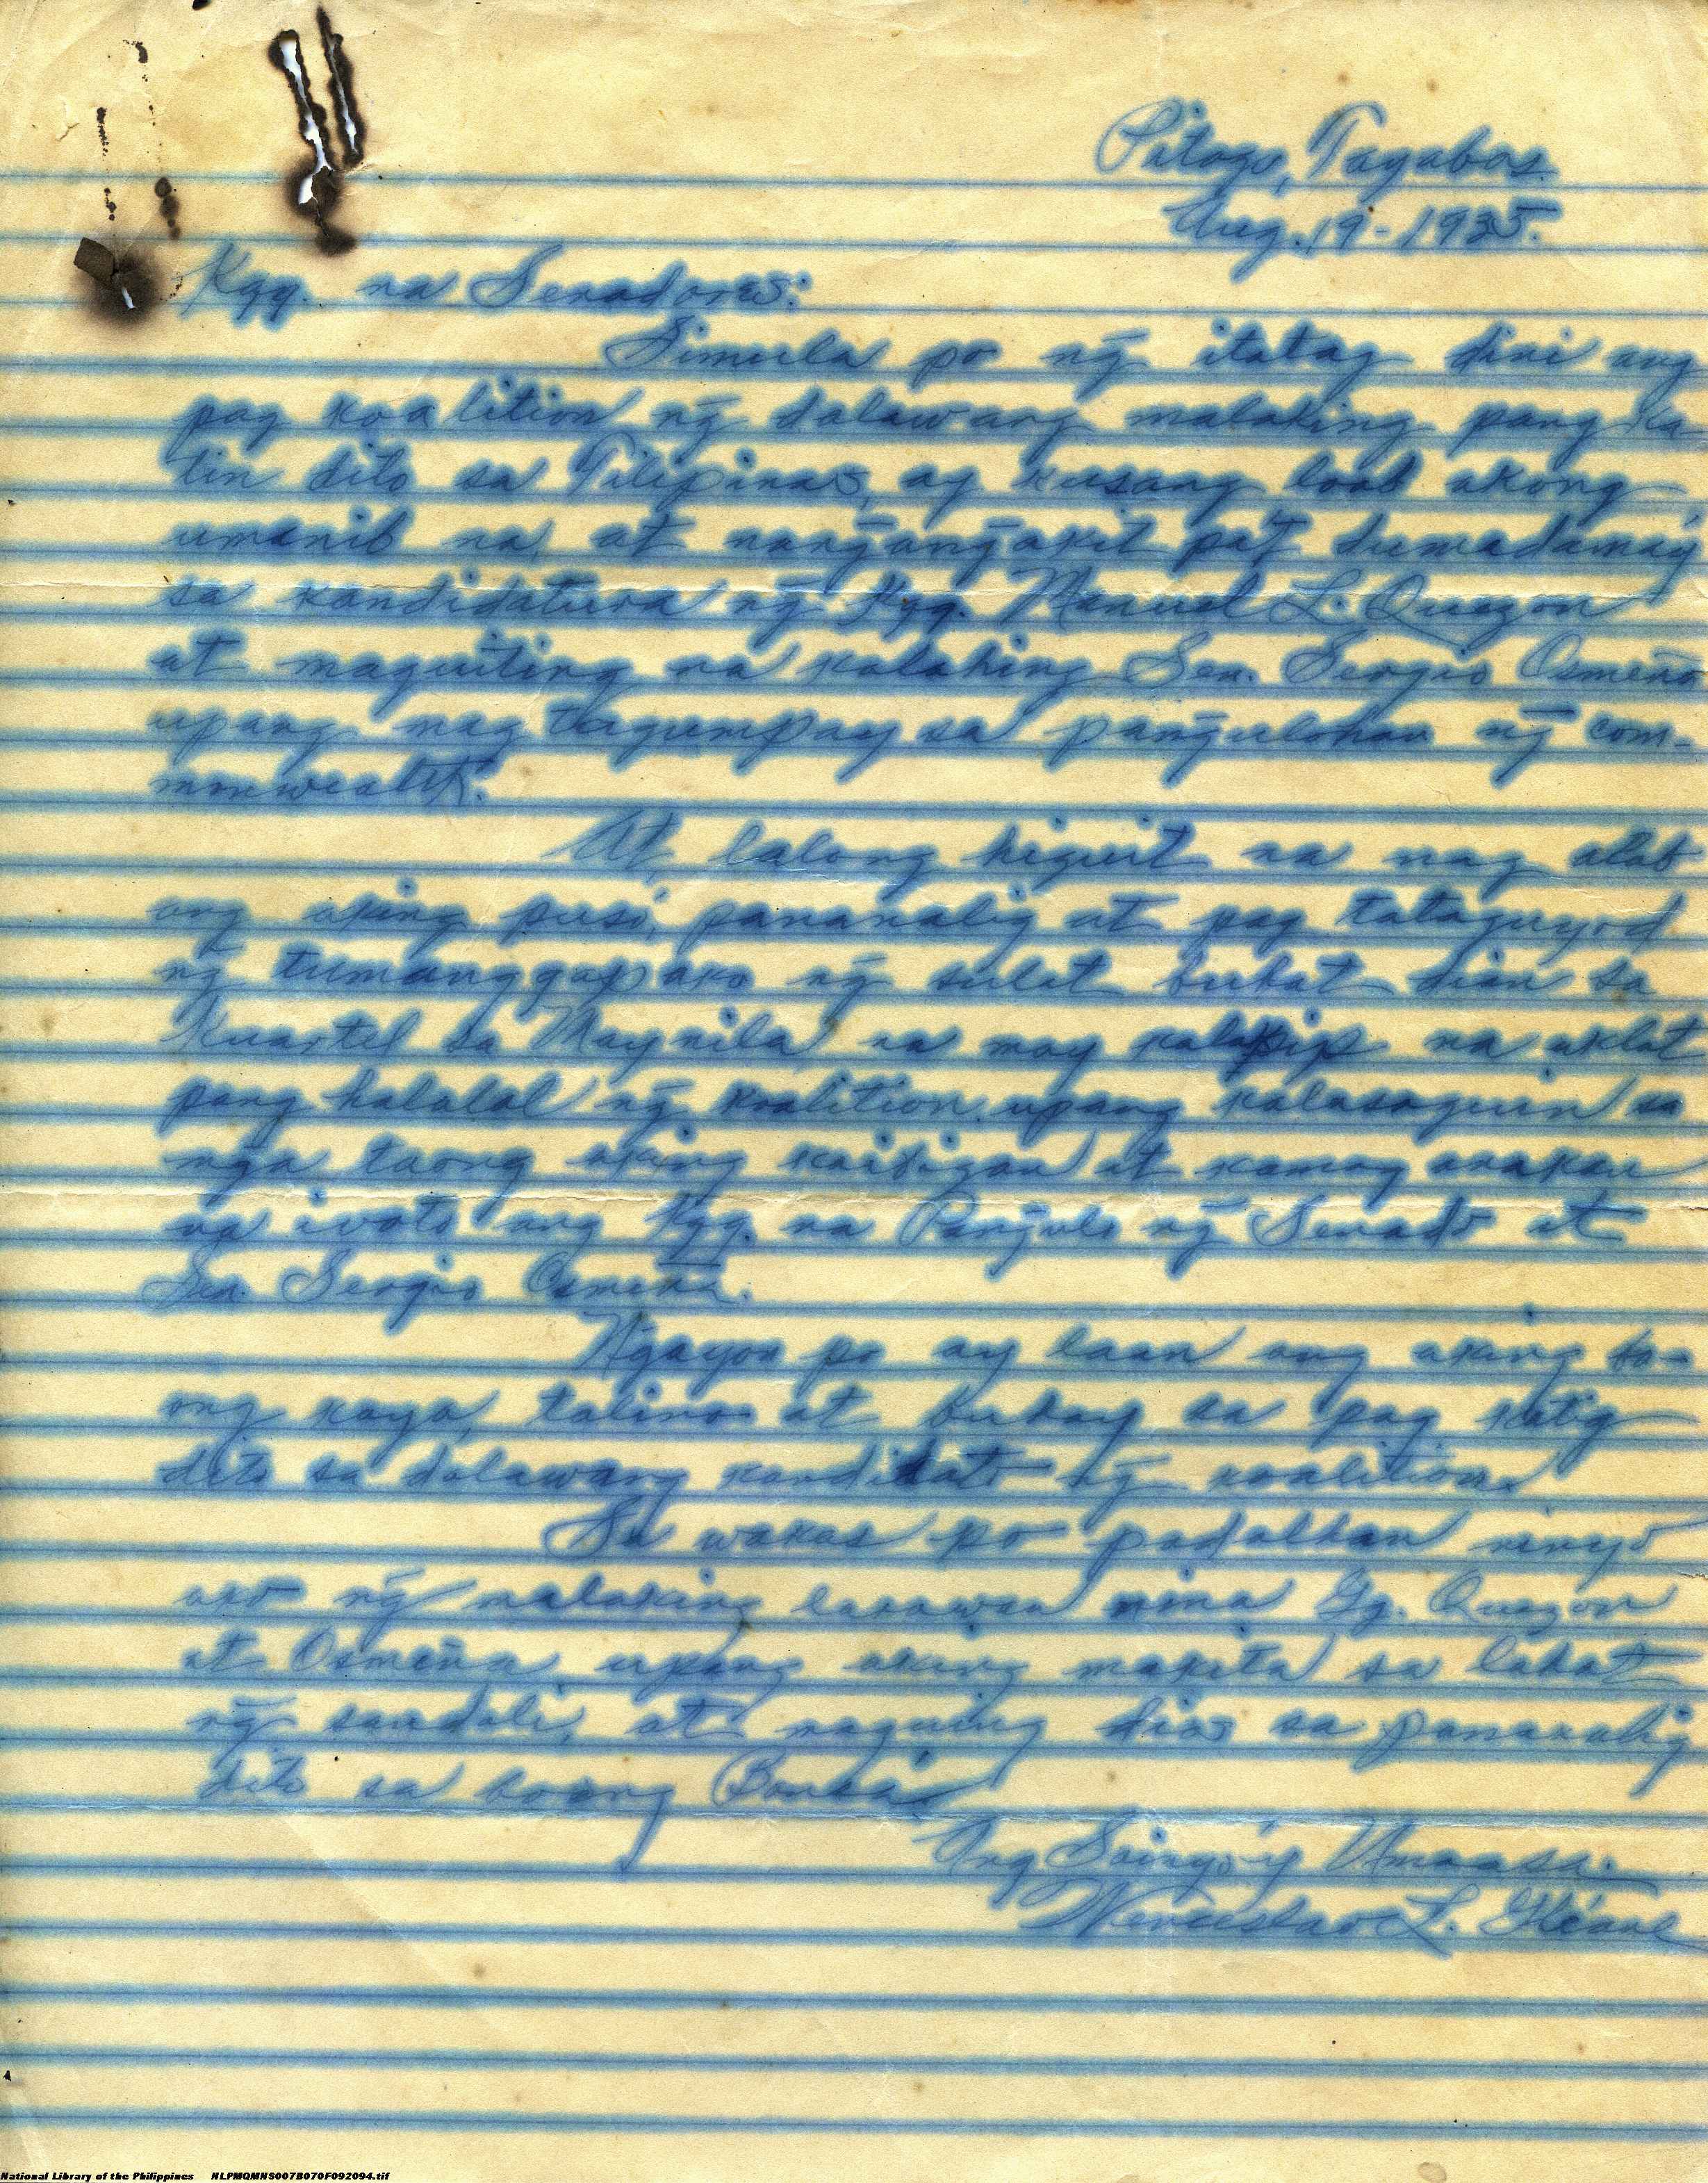 Pitogo, Tayabas.
Aug. 19 - 1935.
Kgg. na Senadores:
Simula po ng̃ itatag dini ang
pag koalition ng̃ dalawang malaking pang ka
tin dito sa Pilipinas, ay kusang loob akong
umanib na, at nang̃ang̃akit pa't dumadamay
sa kandidatura ng̃ Kgg. Manuel L. Quezon
at maguiting na kalahing Sen. Sergio Osmeña
upang mag tagumpay sa pang̃ulohan ng̃ com-
monwealth.
At lalong higuit na nag alab
ang aking puso, pananalig at pag tataguyod
ng tumanggap ako ng̃ sulat buhat dian sa
Kuartel sa Maynila, na may kalakip na aklat
pang halalal ng̃ koalition, upang kalasaguin sa
mga taong aking kaibigan at kamag anakan
na ivoto ang Kgg. na Pang̃ulo ng̃ Senado at
Sen. Sergio Osmeña.
Ng̃ayon po ay laan ang aking bo-
ong kaya, talino at buhay sa pag katig
dito sa dalawang kandidato ng̃ koalition.
Sa wakas po padalhan ninyo
ako ng̃ malaking larawan nina Gg. Quezon
at Osmeña, upang aking makita sa lahat
ng̃ sandali, at naguing dios sa pananalig
dito sa boong
Ang Soing̃o'y Umaasa.
Wenceslao L.
National Library of the Philippines NLPMQMNS007B070F092094.tif